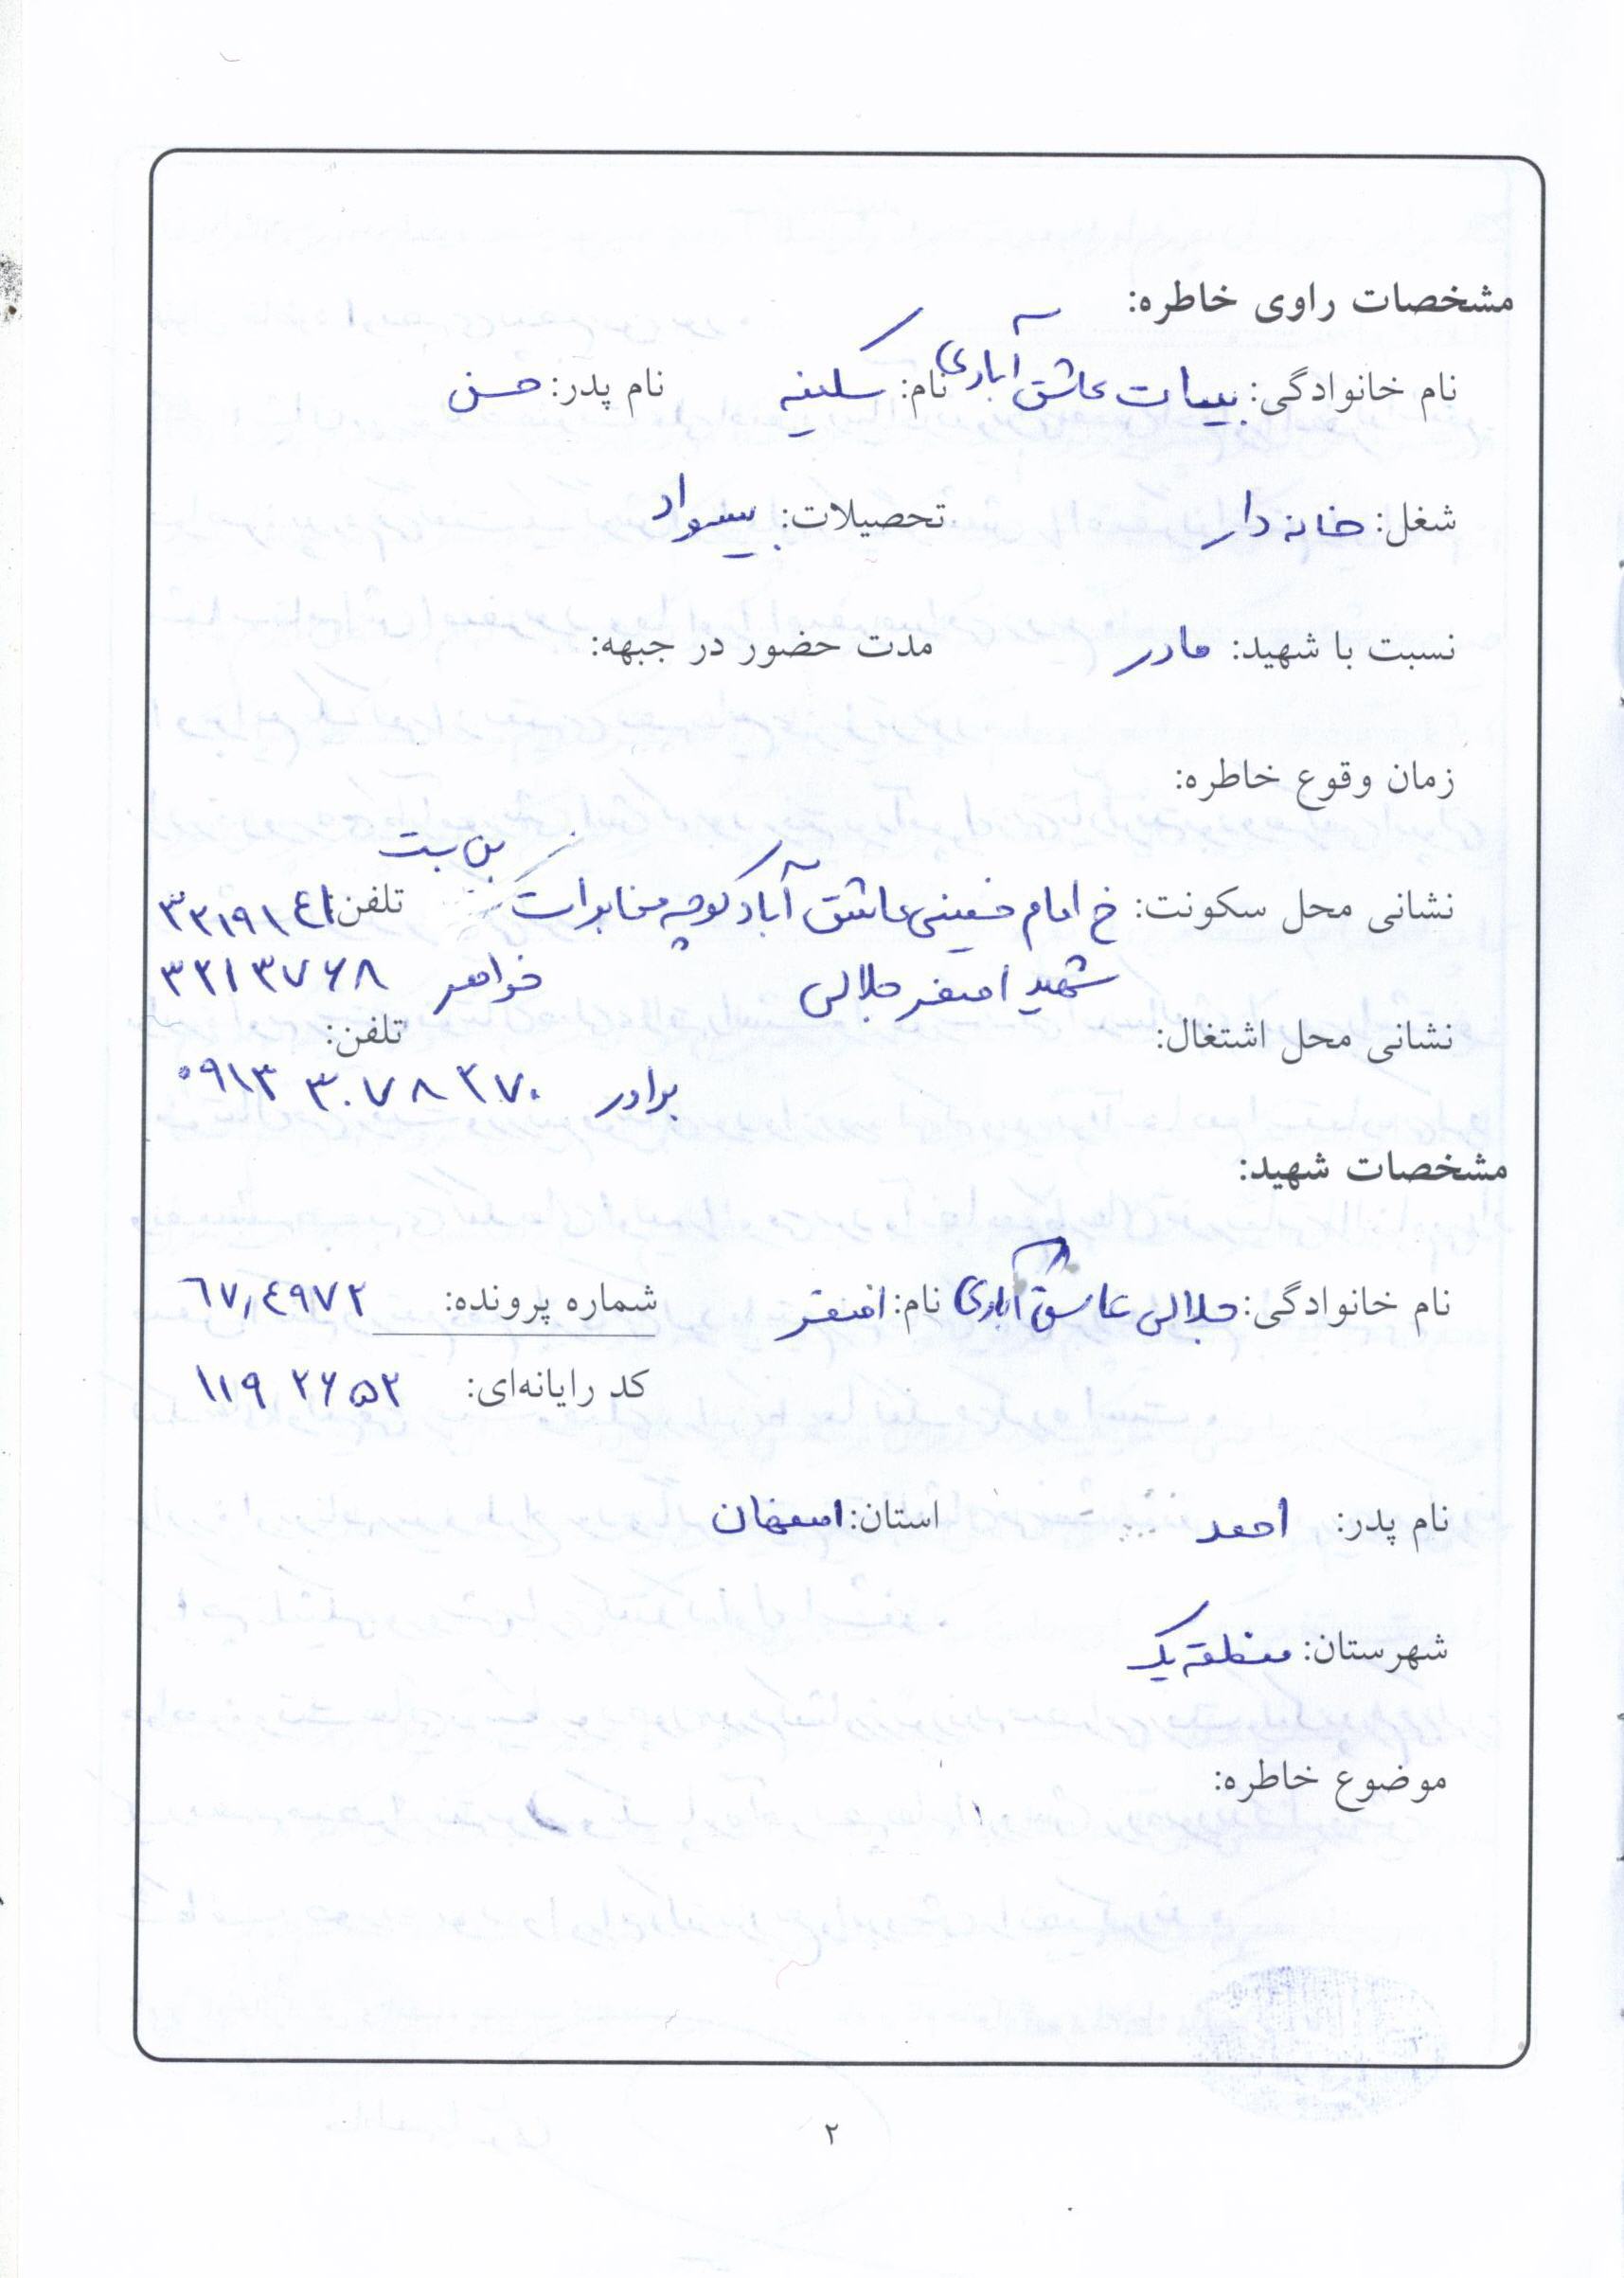 مشخصات راوی خاطره:
نام خانوادگی: بیات عاشق آبادی نام: سکینه نام پدر: حسن
شغل: خانه دار تحصیلات: بیسواد
نسبت با شهید: مادر مدت حضور در جبهه:
زمان وقوع خاطره:
نشانی محل سکونت: خ امام خمینی عاشق آباد کوچه مخابرات بن بست تلفن:
شهید اصغر جلالی خواهر ۳۲۱۳۷۶۸
نشانی محل اشتغال: تلفن:
برادر ۰۹۱۳ ۳۰۷۸۲۷۰
مشخصات شهید:
نام خانوادگی: جلالی عاشق آبادی نام: اصغر شماره پرونده: ۶۷,۴۹۷۲
کد رایانه‌ای: ۱۱۹۲۶۵۲
نام پدر: احمد استان: اصفهان
شهرستان: منطقه یک
موضوع خاطره:
۲